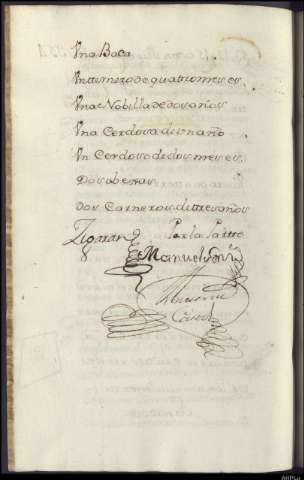 Vna Baca
Vn ternero de quatro meses
Vna Nobilla de dos años
Vna Cerdosa de vn año
Vn Cerdoso de dos meses
Dos abexas
Dos Carneros de tres años
Por la Partte
Manuel